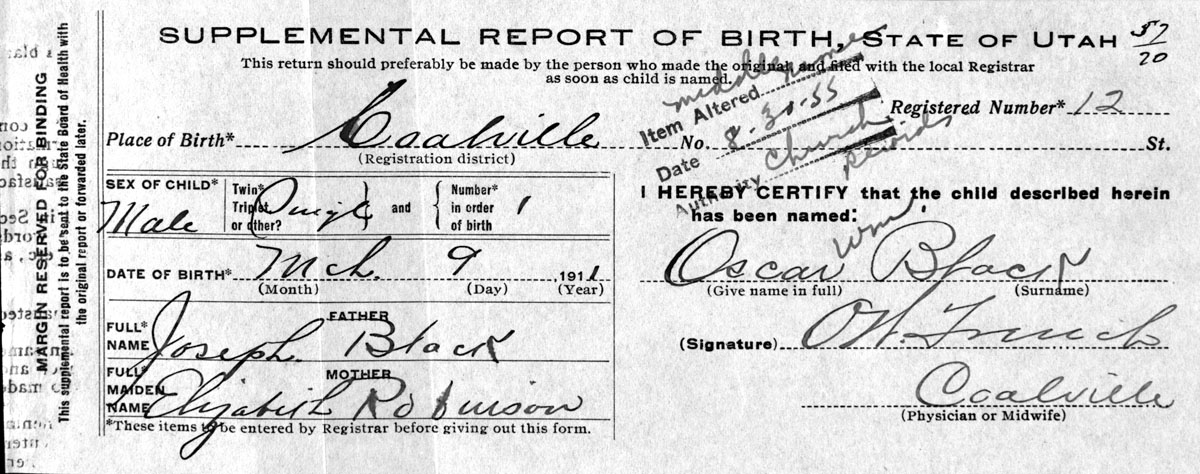 SUPPLEMENTAL REPORT OF BIRTH, STATE OF UTAH 57/20
This return should preferably be made by the person who made the original, and filed with the local Registrar
as soon as child is named.
MARGIN RESERVED FOR BINDING
This supplemental report is to be sent to the State Board of Health with
the original report or forwarded later.
Item Altered middle names
Date 8-30-55
Authority Church Records
Registered Number* 12
Place of Birth* Coalville No. St.
(Registration district)
SEX OF CHILD* Male
Twin*
Triplet
or other? Single and
Number*
in order
of birth 1
DATE OF BIRTH* Mch. 9 1911
(Month) (Day) (Year)
FATHER
FULL*
NAME Joseph Black
MOTHER
FULL*
MAIDEN
NAME Elizabeth Robinson
*These items to be entered by Registrar before giving out this form.
I HEREBY CERTIFY that the child described herein
has been named:
Oscar Wm. Black
(Give name in full) (Surname)
(Signature) O.W. French
Coalville
(Physician or Midwife)